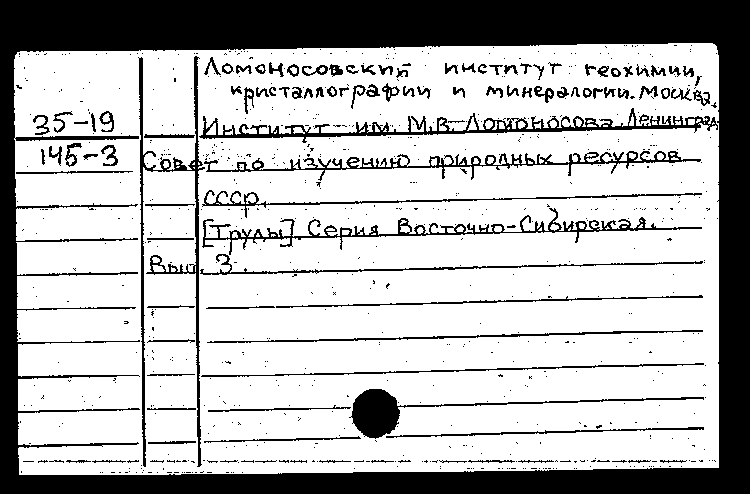 Ломоносовский институт геохимии,
кристаллографии и минералогии. Москва.
35-19 Институт им. М.В. Ломоносова. Ленинград
145-3 Совет по изучению природных ресурсов
СССР.
[Труды]. Серия Восточно-Сибирская.
Вып. 3.